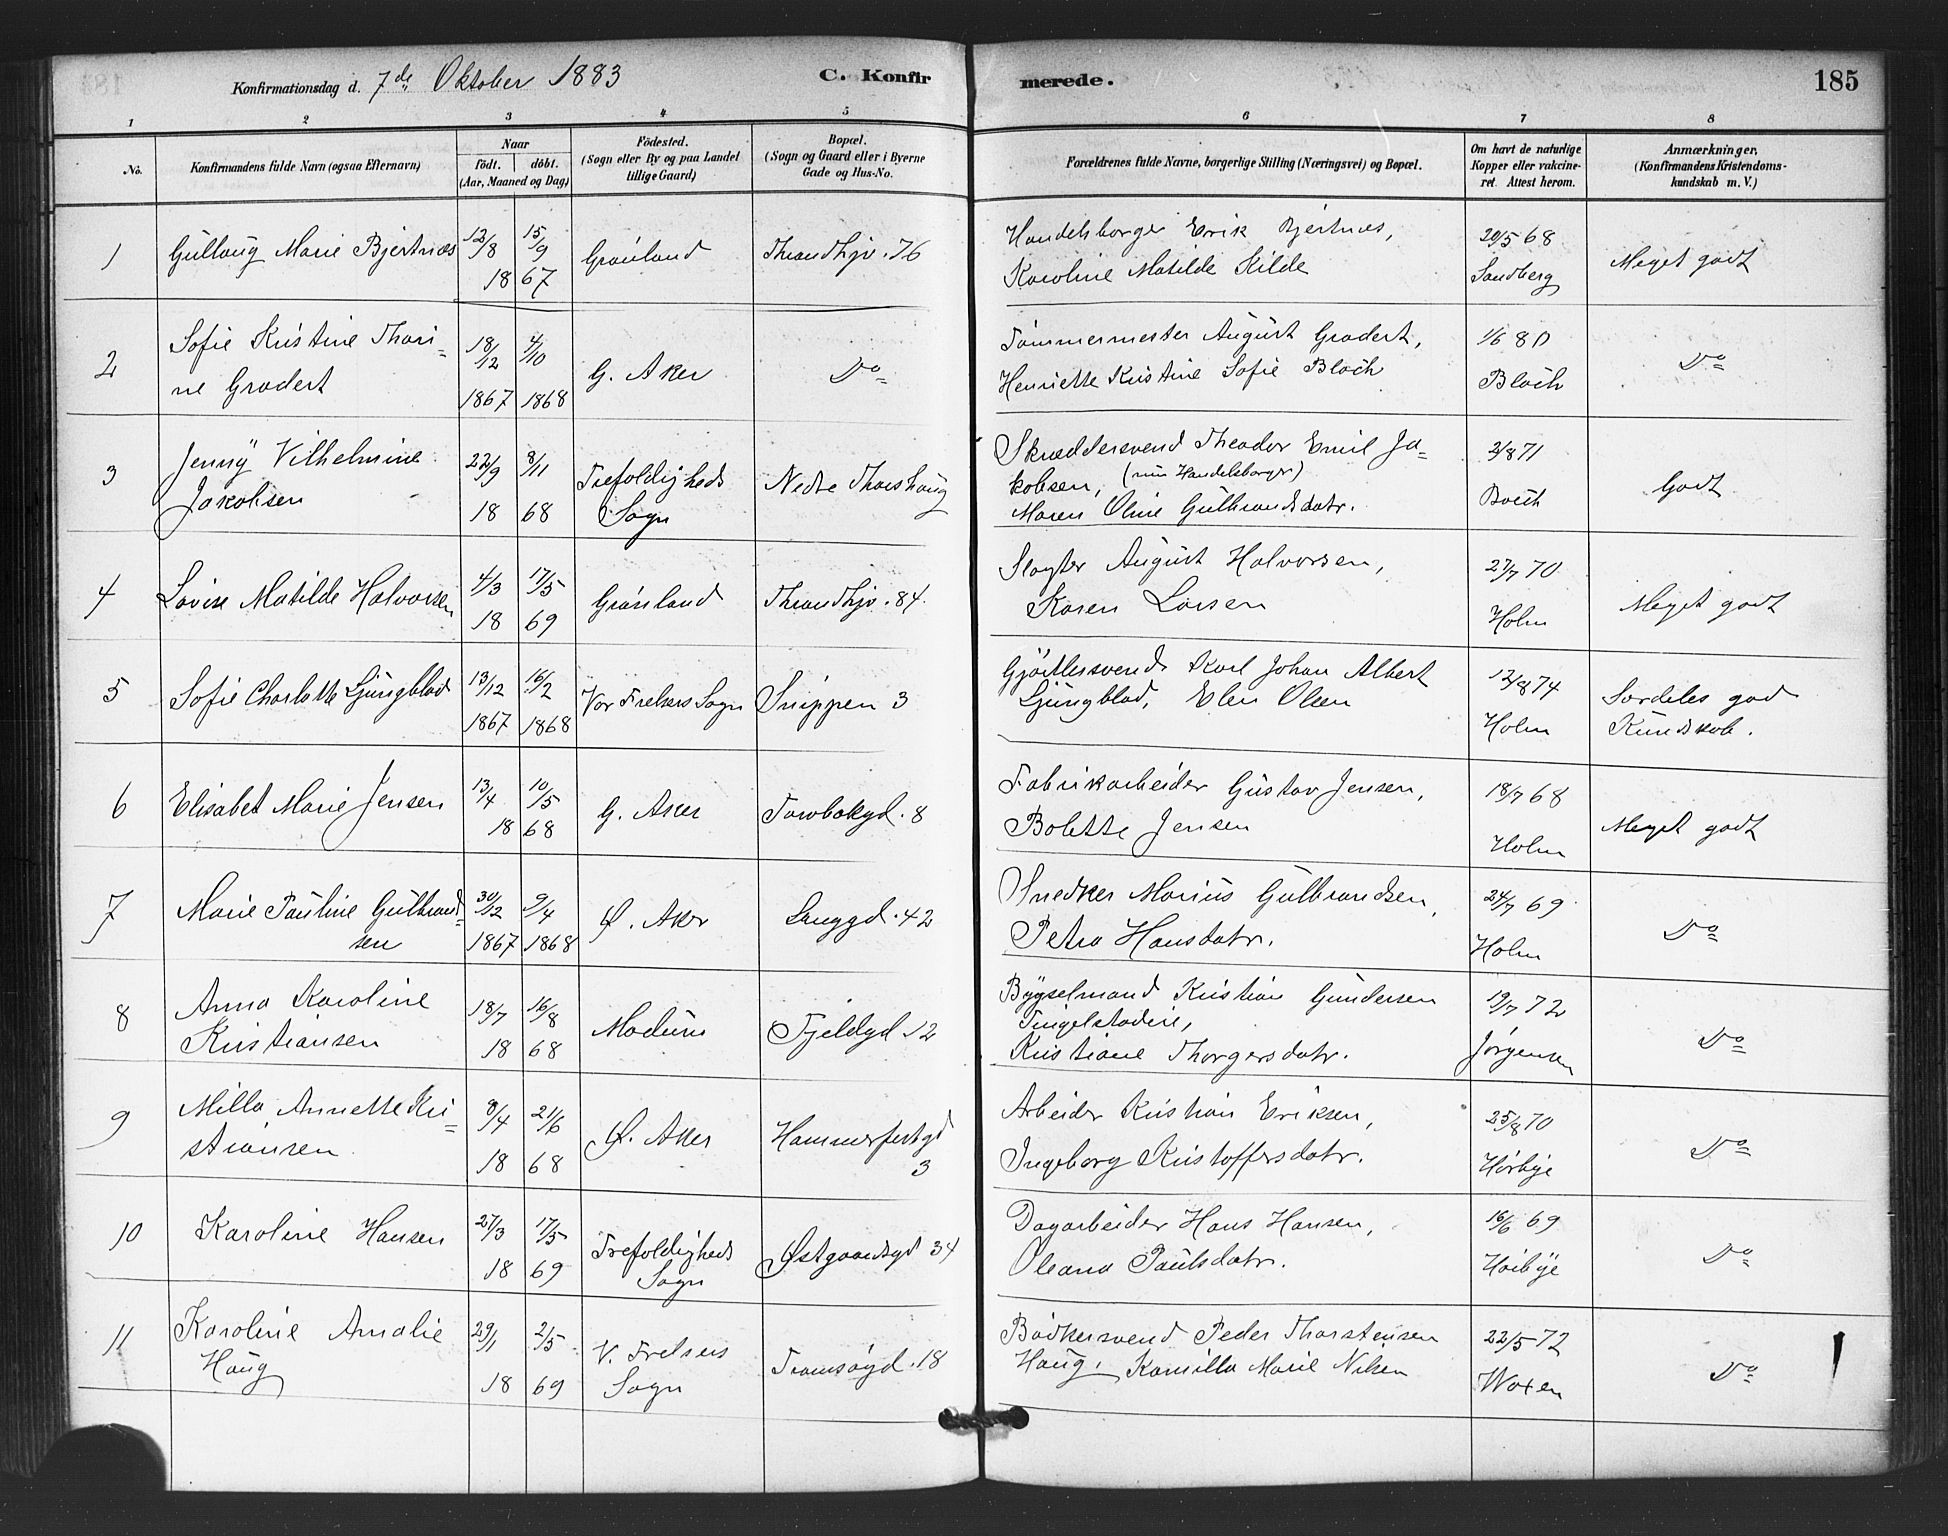 Konfirmationsdag d. 7de Oktober 1883
C. Konfirmerede.
185
1 2 3 4 5 6 7 8
No.
Konfirmandens fulde Navn (ogsaa Efternavn)
Naar
födt. döbt.
(Aar, Maaned og Dag)
Födested.
(Sogn eller By og paa Landet
tillige Gaard)
Bopæl.
(Sogn og Gaard eller i Byerne
Gade og Hus-No.
Forældrenes fulde Navne, borgerlige Stilling (Næringsvei) og Bopæl.
Om havt de naturlige
Kopper eller vakcine-
ret. Attest herom.
Anmærkninger,
(Konfirmandens Kristendoms-
kundskab m. V.)
1 Gullaug Marie Bjertnæs 12/8 15/9 Grønland Thrandhjv. 76 Handelsborger Erik Bjertnæs, 20/5 68 Meget godt
18 67 Karoline Matilde Hilde Sandberg
2 Sofie Kristine Thori= 18/12 4/10 G. Aker Do Tømmermester August Gradert, 1/6 80 Do
ne Gradert 1867 1868 Henriette Kristine Sofie Bloch Bloch
3 Jenny Vilhelmine 22/9 8/11 Trefoldigheds Nedre Thorshaug Skræddersvend Theodor Emil Ja= 2/8 71 Godt
Jakobsen 18 68 Sogn kobsen, (nu Handelsborger)
Maren Oline Gulbrandsdatr.
4 Lovise Matilde Halvorsen 4/3 17/5 Grønland Thrandhjv. 84. Slagter August Halvorsen, 27/7 70 Meget godt
18 69 Karen Larsen Holm
5 Sofie Charlotte Ljungblad 13/12 16/2 Vor Frelsers Sogn Snippen 3 Gjørtlersvend Karl Johan Albert 12/8 74 Særdeles god
1867 1868 Ljungblad, Elen Olsen Holm Kundskab.
6 Elisabet Marie Jensen 13/4 10/5 G. Aker Torvbakgd. 8 Fabrikarbeider Gustav Jensen, 18/7 68 Meget godt
18 68 Bolette Jensen Holm
7 Marie Pauline Gulbrand= 30/12 9/4 Ø. Aker Langgd. 42 Snedker Marius Gulbrandsen, 24/7 69 Do
sen 1867 1868 Petra Hansdatr. Holm
8 Anna Karoline 18/7 16/8 Modum Fjeldgd 12 Bygselmand Kristian Gundersen 19/7 72 Do
Kristiansen 18 68 Tingelstadeie,
Kristiane Thorgersdatr. Jørgensen
9 Milla Annette Kri= 8/4 21/6 Ø. Aker Hammerfestgd Arbeider Kristian Eriksen, 25/8 70 Do
stiansen 18 68 3 Ingeborg Kristoffersdatr. Hørbye
10 Karoline Hansen 27/3 17/5 Trefoldigheds Østgaardsgd 34 Dagarbeider Hans Hansen, 16/6 69 Do
18 69 Sogn Oleana Paulsdatr. Høibye
11 Karoline Amalie 29/1 2/5 V. Frelsers Tromsøgd. 18 Bødkersvend Peder Thorstensen 22/5 72 Do
Haug 18 69 Sogn Haug, Kamilla Marie Nilsen Woxen